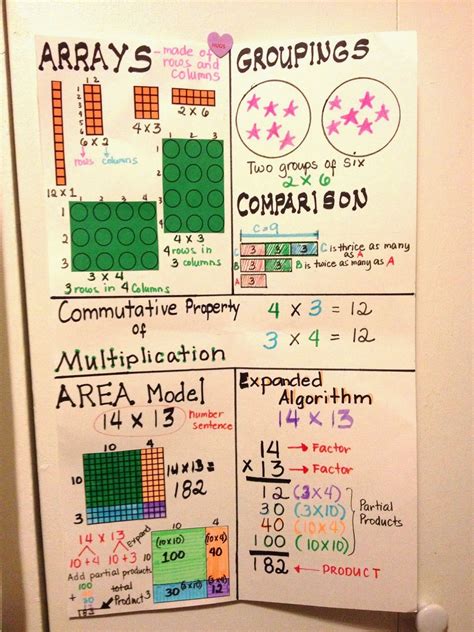 HUGS
ARRAYS - made of rows and columns
12 x 1
1 2
1
2
3
4
5
6
6 x 2
rows columns
4 x 3
2 X 6
1 2 3
1
2
3
4
4 x 3
4 rows in
3 columns
1 2 3 4
1
2
3
3 x 4
3 rows in 4 Columns
GROUPINGS
Two groups of Six
2 x 6
COMPARISON
C=9
C 3 3 3 C is thrice as many as A
B 3 3 B is twice as many as A
A 3
Commutative Property
of
Multiplication
4 x 3 = 12
3 x 4 = 12
AREA Model
14 x 13 Number sentence
10 4
10
3
14 x 13 =
182
14 x 13 Expand
10+4 10+3
Add partial products
100
+
82
total
Product
10 4
10
3
(10x10)
100
(10x4)
40
30 (3x10)
12 (3x4)
Expanded
Algorithm
14 x 13
14 → Factor
x 13 → Factor
12 (3x4)
30 (3x10)
40 (10x4)
100 (10x10)
Partial
Products
182 ← PRODUCT